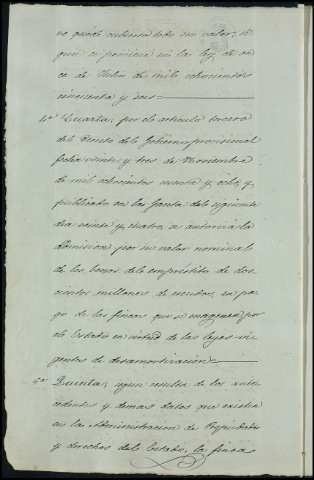 no puede entenderse en valor, se
gun se previene en la ley de on
ce de Julio de mil ochocientos
cincuenta y seis
4ª Cuarta: por el articulo tercero
del Decreto del Gobierno provisional
fecha veinte y tres de Noviembre
de mil ochocientos sesenta y ocho, y
publicado en la Gaceta del siguiente
dia veinte y cuatro, se autoriza la
admision por su valor nominal
de los bonos del emprestito de dos
cientos millones de escudos, en pa
go de las fincas que se enagenen por
el Estado en virtud de las leyes vi
gentes de desamortizacion
5ª Quinta: segun resulta de los ante
cedentes y demas datos que existen
en la Administracion de Propiedades
y derechos del Estado, la finca